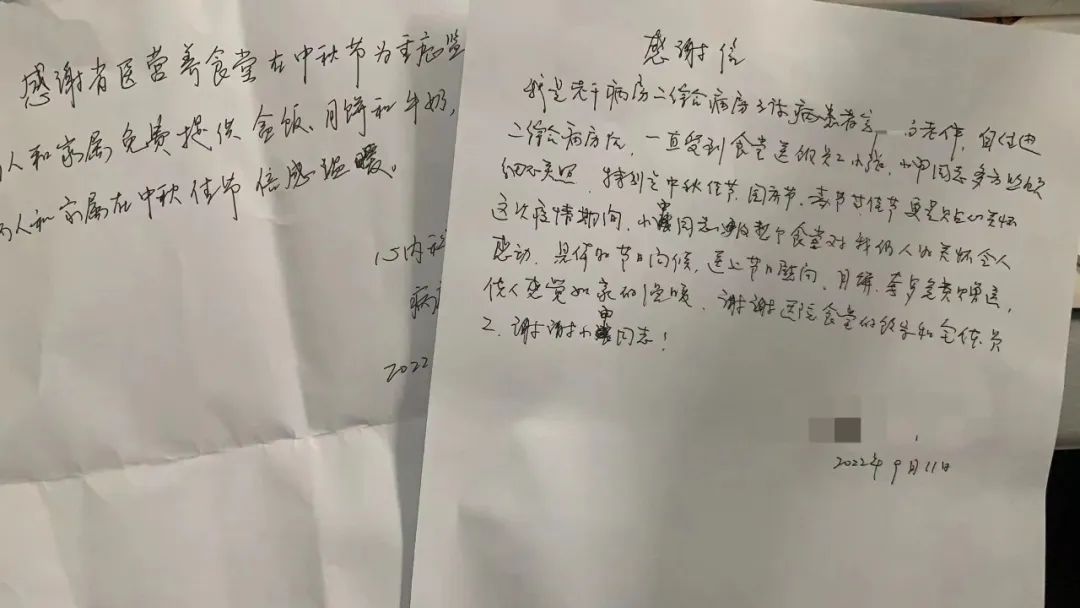 感谢省医营养食堂在中秋节为重症监
人和家属免费提供盒饭、月饼和牛奶,
人和家属在中秋佳节倍感温暖。
心内科
病
2022
感谢信
我是老干病房二综合病房 病患者 老伴, 自住进
二综合病房后, 一直受到食堂送饭员工小张, 小申同志多方照顾
细心关照, 特别是中秋佳节、国庆节、春节等佳节更是贴心关怀
这次疫情期间, 小申同志以及整个食堂对我们病人的关怀令人
感动, 具体的节日问候, 送上节日慰问, 月饼、 赠送,
使人感觉如家的温暖, 谢谢医院食堂的领导和全体员
工. 谢谢小申同志!
2022年9月11日